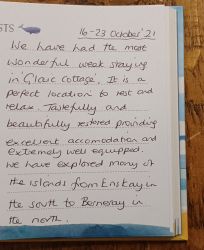 STS
16-23 October '21
We have had the most
wonderful weak staying
in 'Glaic Cottage'. It is a
perfect location to rest and
relax. Tastefully and
beautifully restored providing
excellent accomodation and
extremely well equipped.
We have explored many of
the islands from Eriskay in
the south to Berneray in
the north.